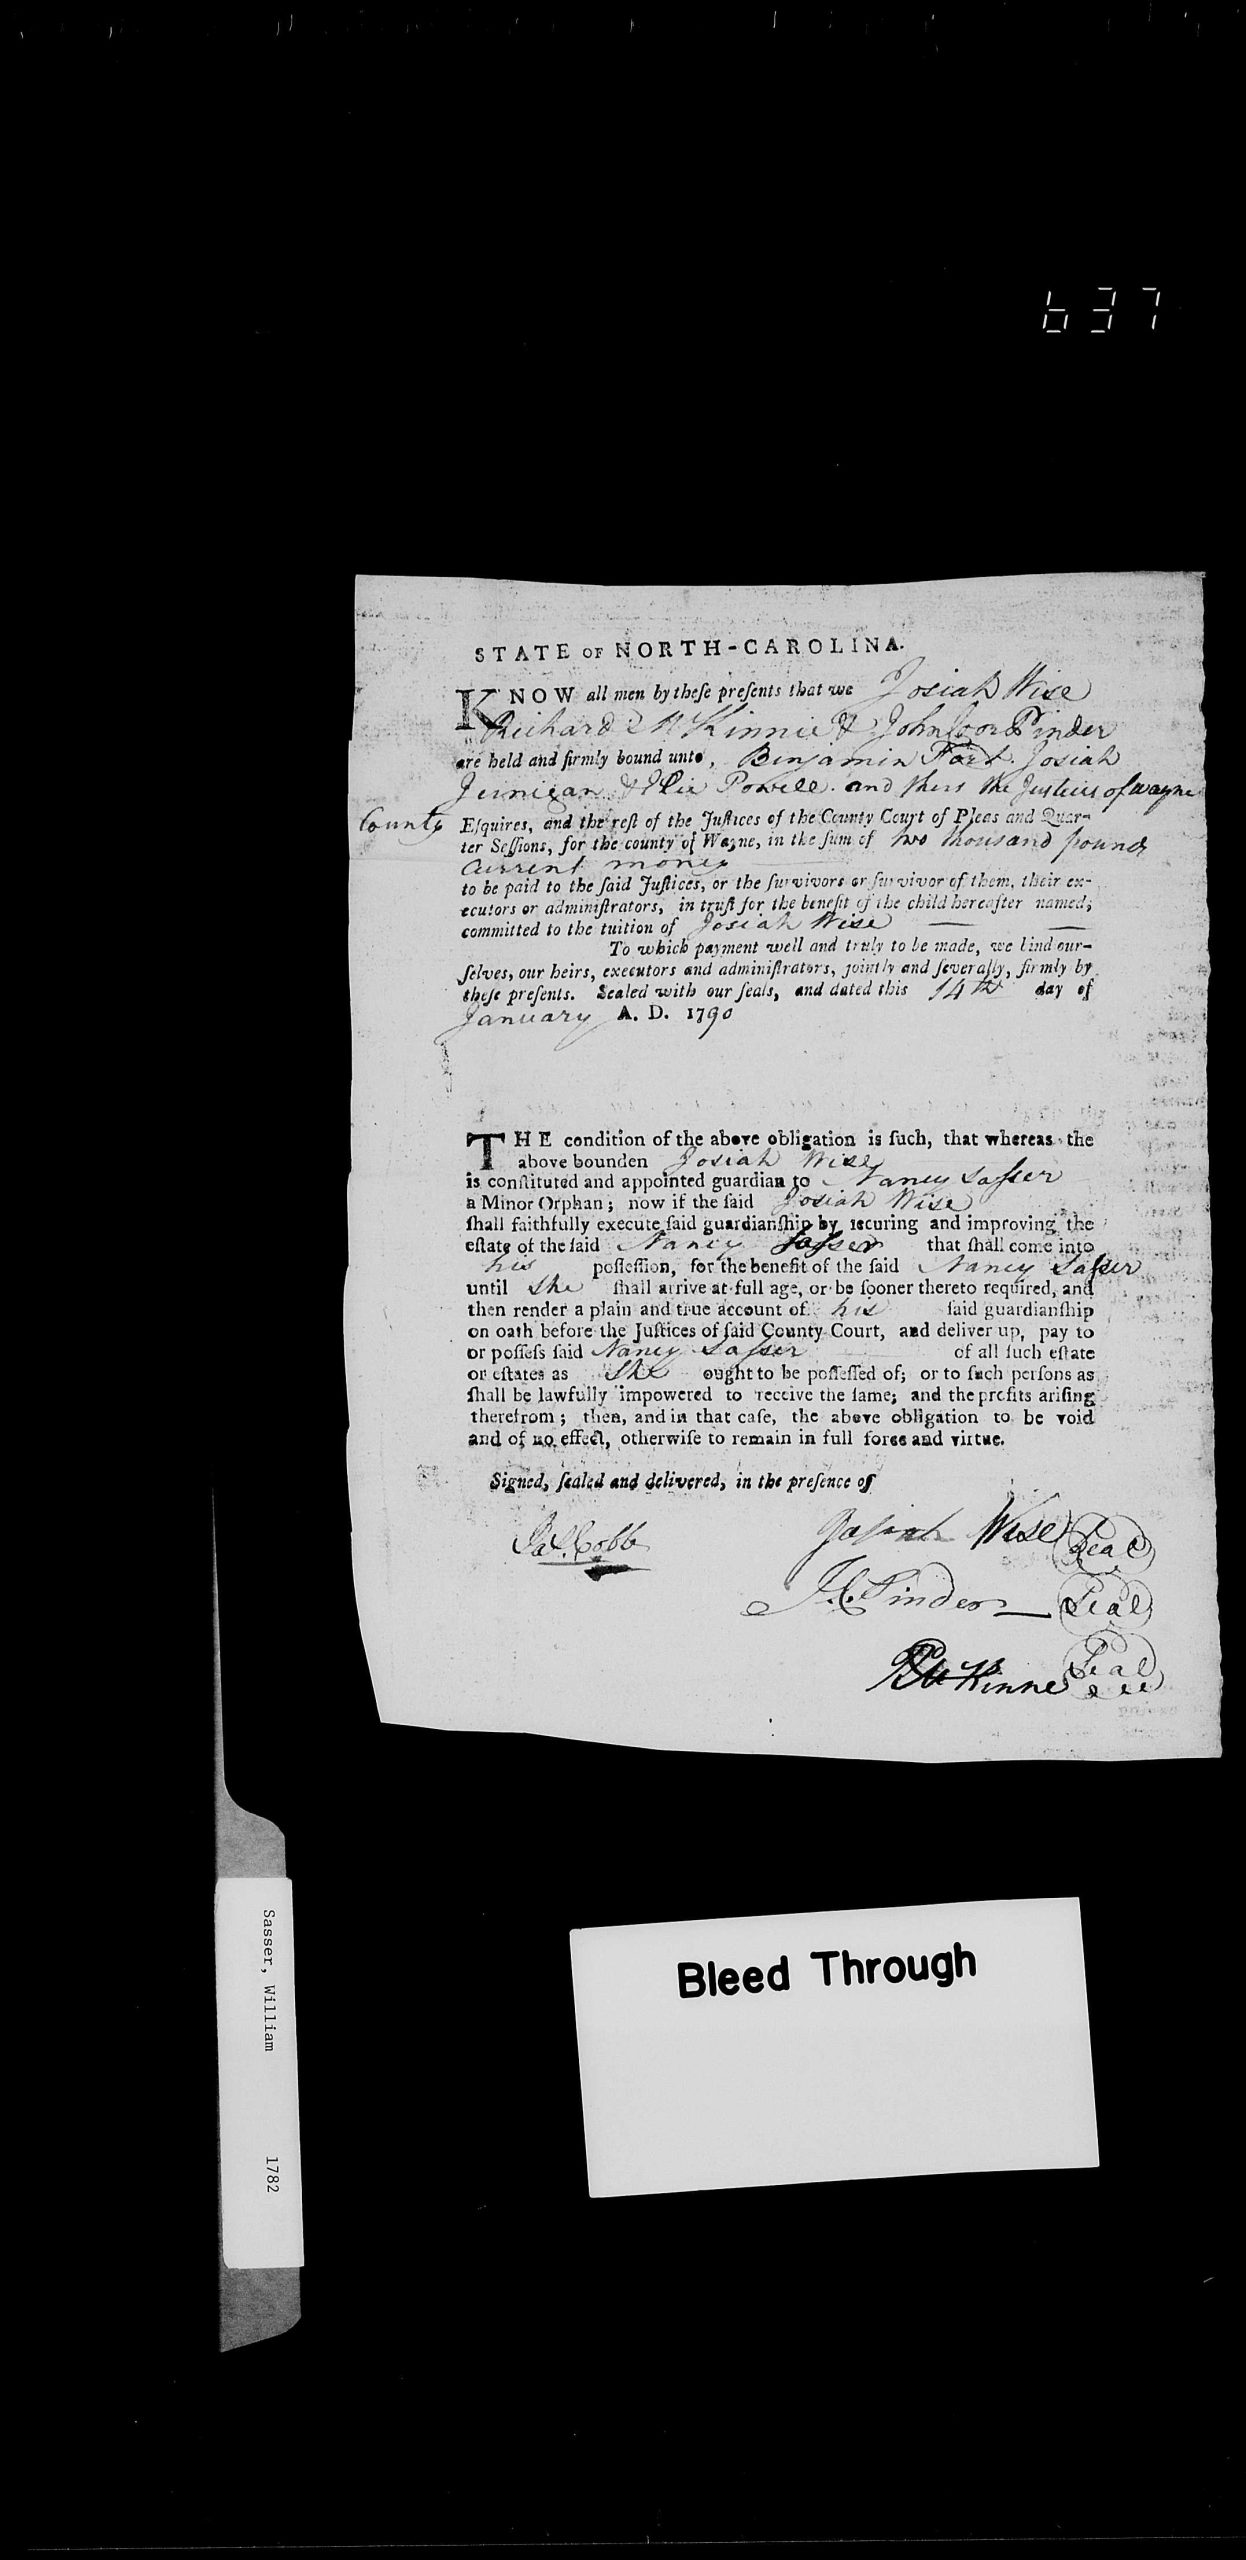 637
STATE OF NORTH-CAROLINA.
KNOW all men by theſe preſents that we Josiah Wise
Richard McKinnie & John Coor Pinder
are held and firmly bound unto, Benjamin Fort. Josiah
Jernigan & Elie Powell. and thers the Justices of Wayne
County Eſquires, and the reſt of the Juſtices of the County Court of Pleas and Quar-
ter Seſſions, for the county of Wayne, in the ſum of two thousand pounds
Current money
to be paid to the ſaid Juſtices, or the ſurvivors or ſurvivor of them, their ex-
ecutors or adminiſtrators, in truſt for the benefit of the child hereafter named,
committed to the tuition of Josiah Wise
To which payment well and truly to be made, we bind our-
ſelves, our heirs, executors and adminiſtrators, jointly and ſeverally, firmly by
theſe preſents. Sealed with our ſeals, and dated this 14th day of
January A. D. 1790
THE condition of the above obligation is ſuch, that whereas the
above bounden Josiah Wise
is conſtituted and appointed guardian to Nancy Saſser
a Minor Orphan; now if the ſaid Josiah Wise
ſhall faithfully execute ſaid guardianſhip by ſecuring and improving the
eſtate of the ſaid Nancy Saſser that ſhall come into
his poſſeſſion, for the benefit of the ſaid Nancy Saſser
until she ſhall arrive at full age, or be ſooner thereto required, and
then render a plain and true account of his ſaid guardianſhip
on oath before the Juſtices of ſaid County Court, and deliver up, pay to
or poſſeſs ſaid Nancy Saſser of all ſuch eſtate
or eſtates as She ought to be poſſeſſed of; or to ſuch perſons as
ſhall be lawfully impowered to receive the ſame; and the profits ariſing
therefrom; then, and in that caſe, the above obligation to be void
and of no effect, otherwiſe to remain in full force and virtue.
Signed, ſealed and delivered, in the preſence of
Jas. Cobb
Josiah Wise Seal
J. C. Pinder Seal
Rd McKinne Seal
Sasser, William 1782
Bleed Through